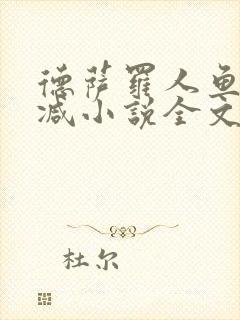 德萨罗人鱼
减小说全文
杜尔